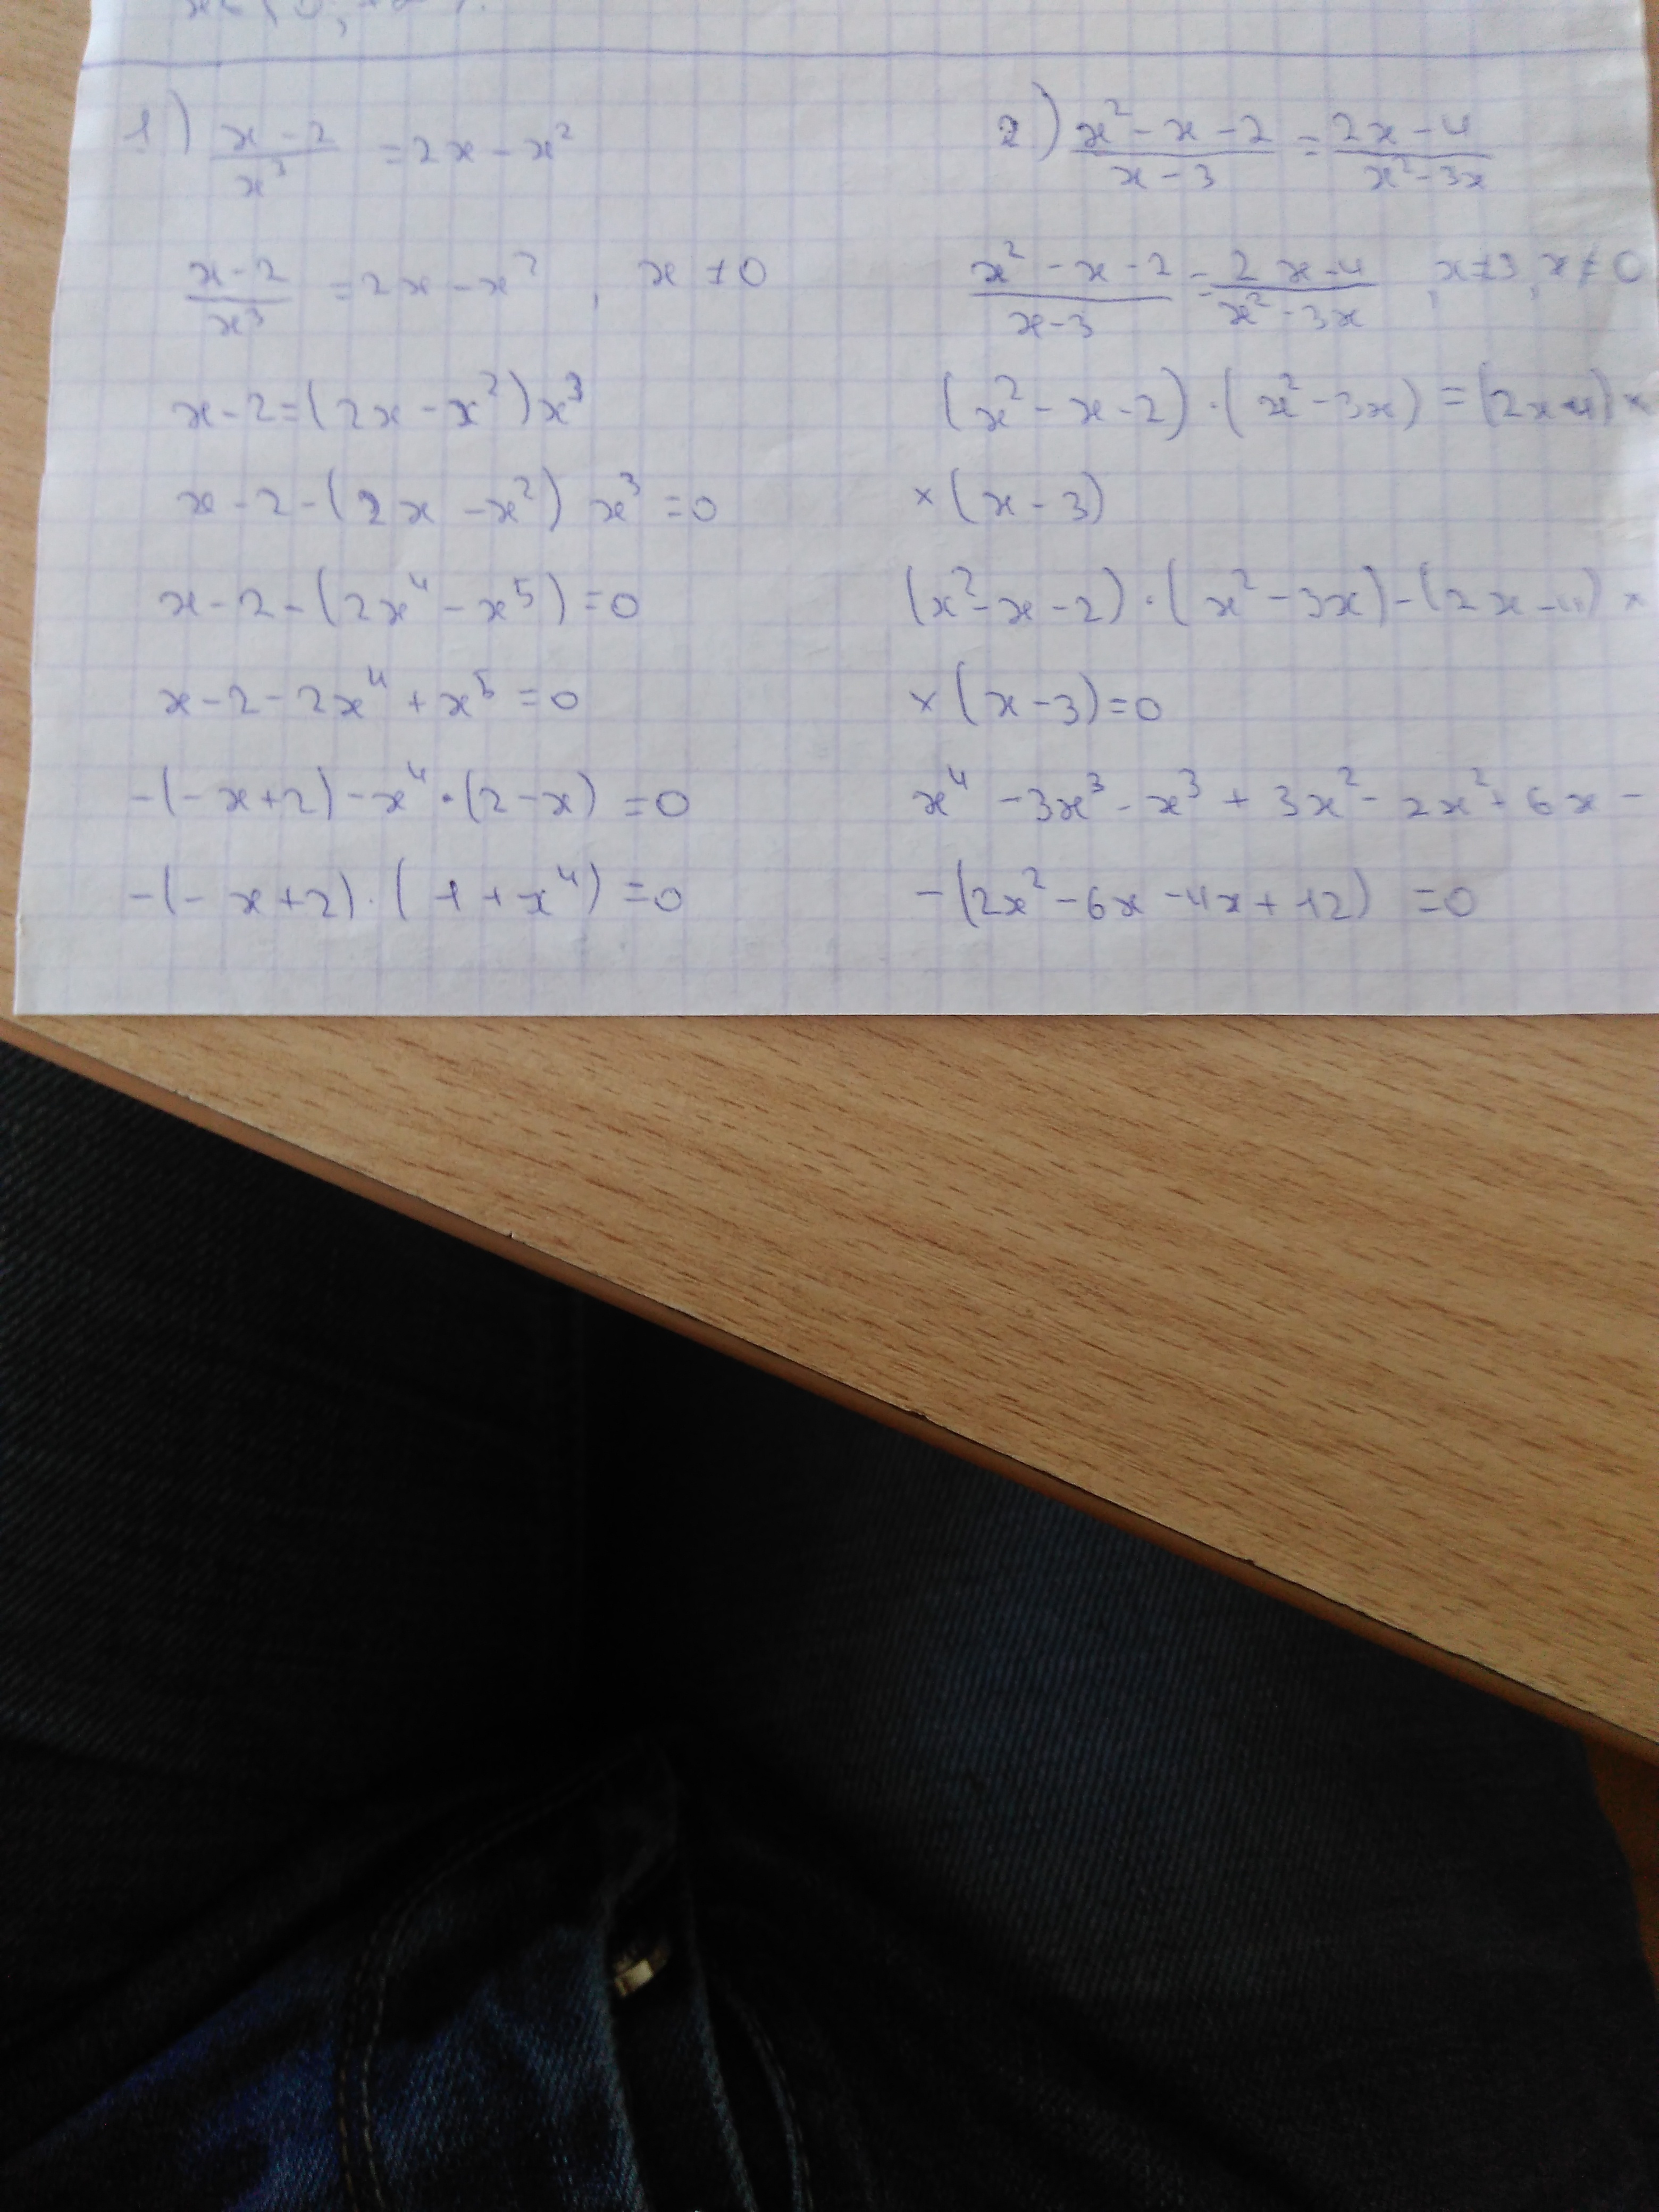 1) (x-2)/x³ = 2x - x²
(x-2)/x³ = 2x - x², x ≠ 0
x-2=(2x-x²)x³
x-2-(2x-x²) x³ =0
x-2-(2x⁴-x⁵)=0
x-2-2x⁴+x⁵=0
-(-x+2)-x⁴·(2-x)=0
-(-x+2)·(1+x⁴)=0
2) (x²-x-2)/(x-3) = (2x-4)/(x²-3x)
(x²-x-2)/(x-3) = (2x-4)/(x²-3x), x≠3, x≠0
(x²-x-2)·(x²-3x)=(2x-4)×
×(x-3)
(x²-x-2)·(x²-3x)-(2x-4)×
×(x-3)=0
x⁴-3x³-x³+3x²-2x²+6x-
-(2x²-6x-4x+12)=0